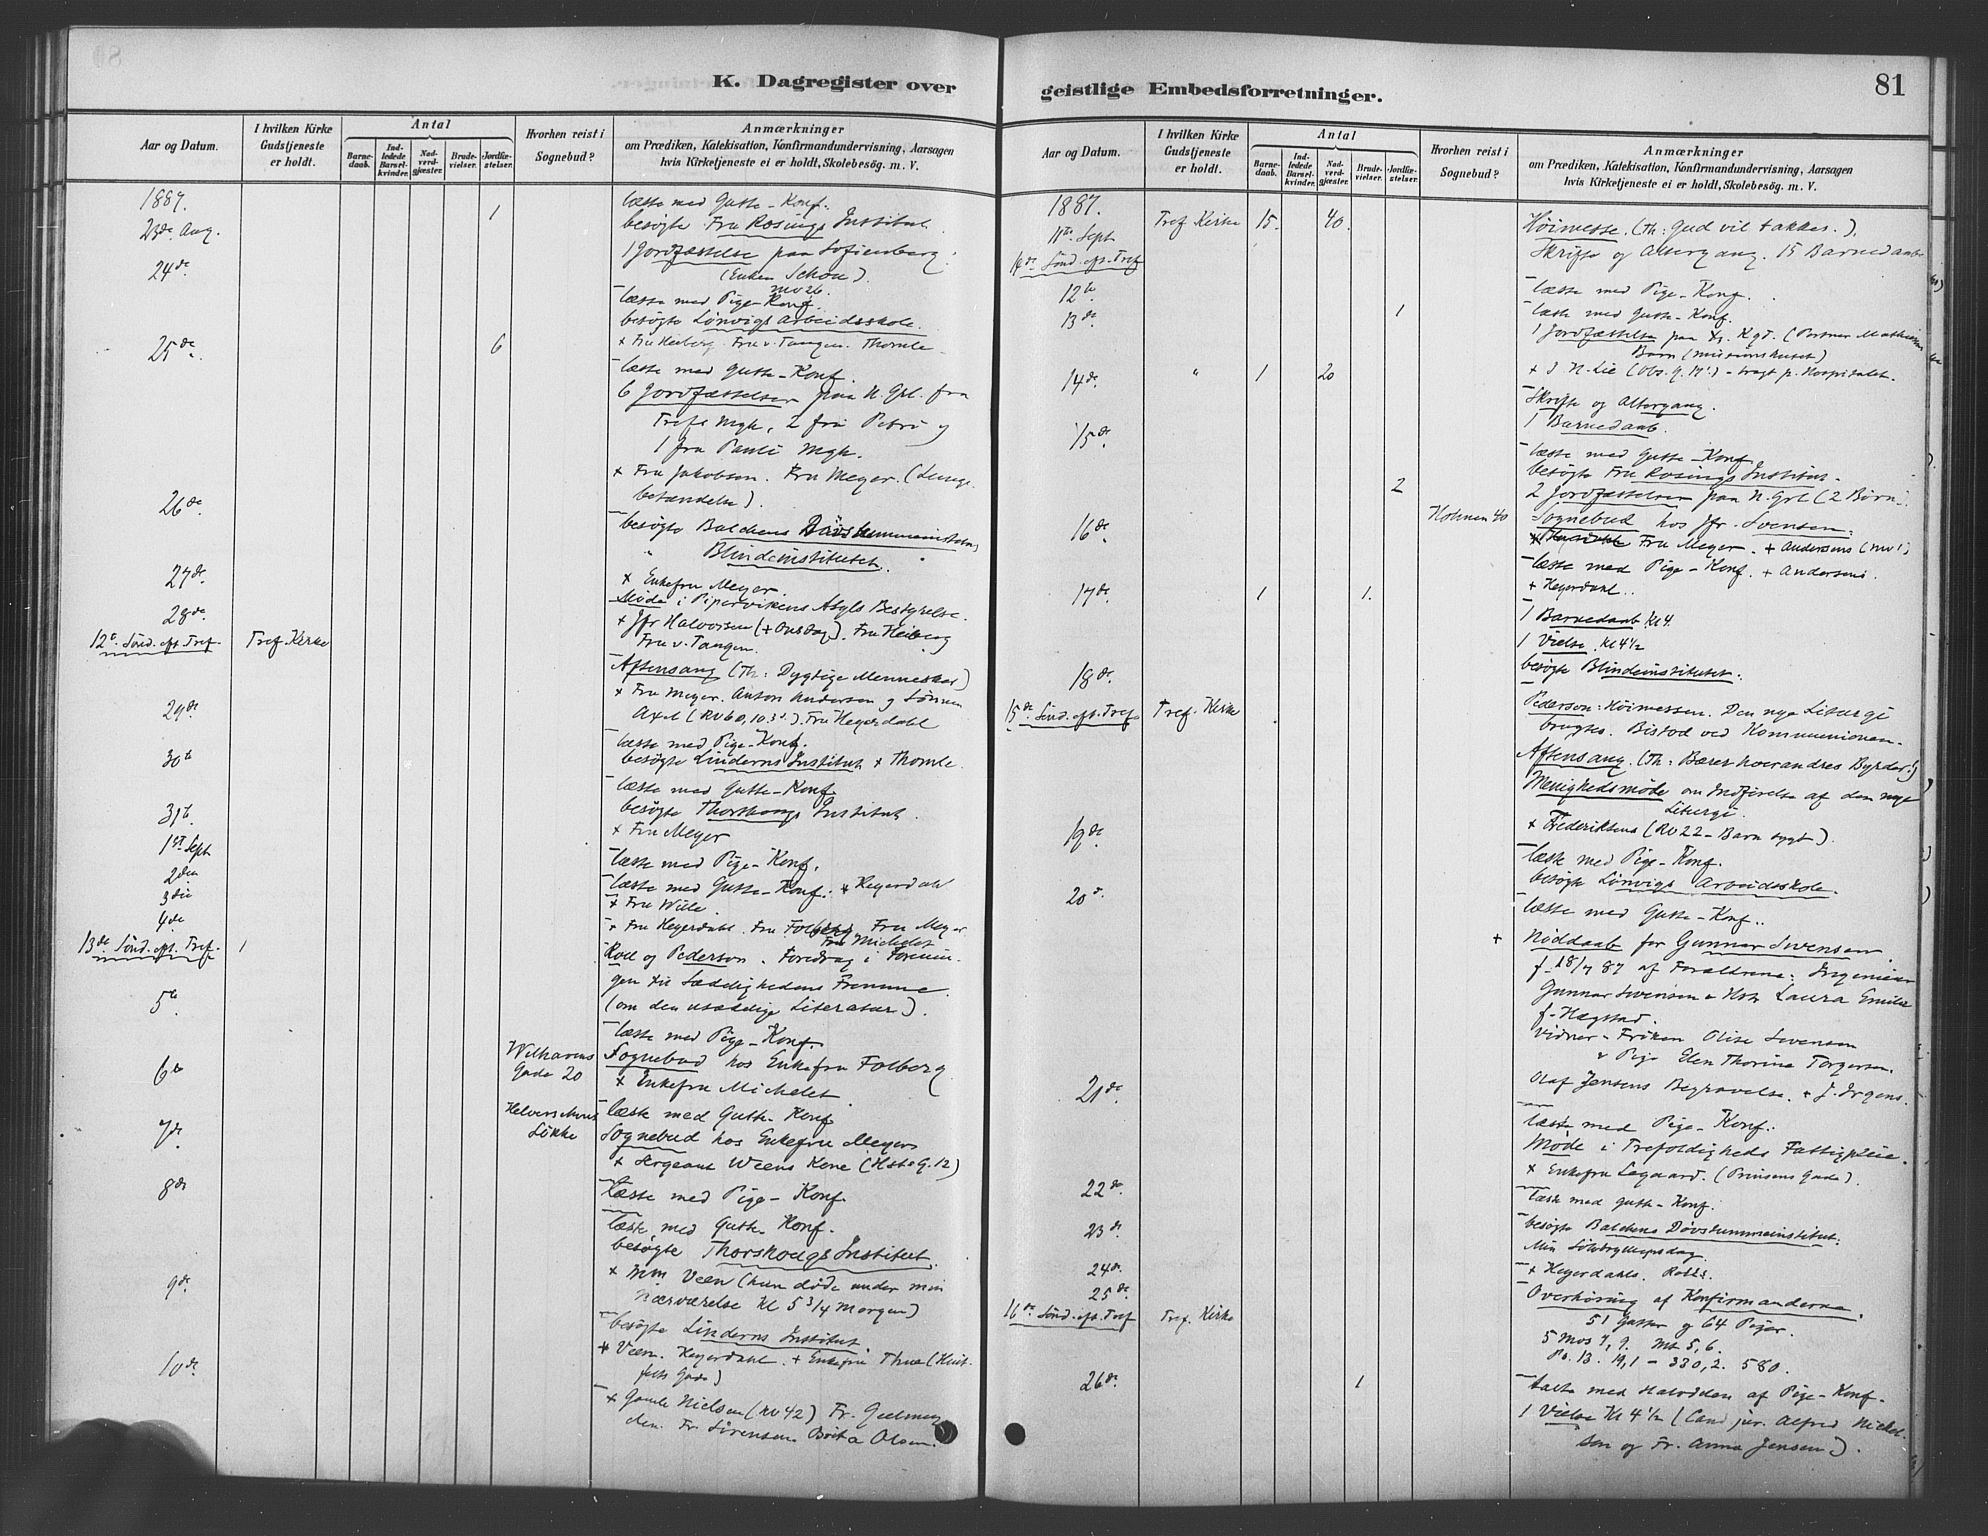 K. Dagregister over
Aar og Datum.
I hvilken Kirke Gudstjeneste er holdt.
Antal
Barnedaab.
Indledede Barselkvinder.
Nadverdgjæster.
Brudevielser.
Jordfæstelser.
Hvorhen reist i Sognebud?
Anmærkninger
om Prædiken, Katekisation, Konfirmandundervisning, Aarsagen
hvis Kirketjeneste ei er holdt, Skolebesøg. m. V.
1887.
23de Aug. 1 læste med Gutte-Konf.
besøgte Fru Rosings Institut.
1 Jordfæstelse paa Sofienberg
(Enken Schou).
24de læste med Pige-Konf.
besøgte Lønvigs Arbeidsskole.
+ Fru Heiberg. Fru v. Tangen. Thomle.
25de 6 læste med Gutte-Konf.
6 Jordfæstelser paa N. Grl. fra
Trefs Mgh, 2 fra Petri og
1 fra Pauli Mgh.
+ Fru Jakobsen. Fru Meyer. (Lunge
betændelse).
26de besøgte Balchens Døvstummeinstitut
" Blindeinstitutet.
27de + Enkefru Meyer.
Møde i Pipervikens Asyls Bestyrelse.
28de + Jfr Halvorsen (+ Onsdag). Fru Heiberg
Fru v. Tangen.
12te Sønd. eft. Tref. Tref. Kirke
Aftensang (Th: Dygtige Mennesker)
+ Fru Meyer. Anton Andersen og Sønnen
29de Axel (RV 60, 10. 3.). Fru Heyerdahl
læste med Pige-Konf.
30te besøgte Linderns Institut + Thomle.
læste med Gutte-Konf.
besøgte Thorskougs Institut.
31te + Fru Meyer
1st Sept læste med Pige-Konf.
2den læste med Gutte-Konf. + Heyerdahl
3die + Fru Wille.
4de + Fru Heyerdahl. Fru Folberg. Fru Meyer
Fru Michelet
13de Sønd. eft. Tref. 1 Roll og Pederson. Foredrag i Forenin-
gen til Sædelighedens Fremme
5te (om den usædelige Literatur).
læste med Pige-Konf.
6te Welhavens Gade 20 Sognebud hos Enkefru Folberg
+ Enkefru Michelet.
læste med Gutte-Konf
7de Løkke Sognebud hos Enkefru Meyer
+ Sergeant Weens Kone (Hsts G. 12)
8de læste med Pige-Konf
læste med Gutte-Konf.
besøgte Thorskougs Institut.
9de + Mm Veen (hun døde under min
Nærværelse Kl 5 3/4 Morgen)
besøgte Linderns Institut.
10de + Veen. Heyerdahl. + Enkefru Thue (Huit-
felts Gade)
+ Gamle Nielsen (RV 42) Fr. Geelmuy-
den. Fr. Sørensen. Berta Olsen.
geistlige Embedsforretninger.
81
Aar og Datum.
I hvilken Kirke Gudstjeneste er holdt.
Antal
Barnedaab.
Indledede Barselkvinder.
Nadverdgjæster.
Brudevielser.
Jordfæstelser.
Hvorhen reist i Sognebud?
Anmærkninger
om Prædiken, Katekisation, Konfirmandundervisning, Aarsagen
hvis Kirketjeneste ei er holdt, Skolebesøg. m. V.
1887.
11te Sept Tref Kirke 15. 40. Høimesse. (Th: Gud vil takkes.).
14de Sønd. eft. Tref Skrifte og Altergang. 15 Barnedaab
12te læste med Pige-Konf.
13de 1 læste med Gutte-Konf.
1 Jordfæstelse paa Kgd. (Portner Mathiesens
Barn (Missionshuset)
14de " 1 20 + J N. Lie - bragt p. Hospitalet.
Skrifte og Altergang.
1 Barnedaab.
15de læste med Gutte-Konf
besøgte Fru Rosings Institut.
2 2 Jordfæstelser paa N. Grl (2 Børn).
16de Holmen 40 Sognebud hos Jfr. Svensen.
Fru Meyer. + Andersens
læste med Pige-Konf. + Andersens.
17de 1 1. + Heyerdahl..
1 Barnedaab Kl 4.
1 Vielse. Kl 4 1/2
18de besøgte Blindeinstitutet.
15de Sønd. eft. Tref. Tref. Kirke Pederson: Høimessen. Den nye Liturgi
brugtes. Bistod ved Kommunionen.
Aftensang. (Th: Bærer hverandres Byrder!)
Menighedsmøde om Indførelse af den nye
Liturgi.
19de + Frederiksens (RV 22 - Barn sygt).
læste med Pige-Konf.
20de besøgte Lønvigs Arbeidsskole.
læste med Gutte-Konf..
+ Nøddaab for Gunnar Svensen.
f. 18/7 87 af Forældrene: Ingeniør
Gunnar Svensen & Hst. Laura Emilie
f. Hægstad.
Vidner - Frøken Olise Svensen
& Pige Elen Thorina Torgersen.
21de Olaf Jensens Begravelse. + J. Irgens.
læste med Pige-Konf.
Møde i Trefoldigheds Fattigpleie.
22de + Enkefru Lagaard. (Prinsens Gade).
læste med Gutte-Konf.
23de besøgte Balchens Døvstummeinstitut.
Min Sølvbryllupsdag.
24de + Heyerdahls. Rolls.
25de Overhøring af Konfirmanderne.
16de Sønd. eft. Tref Tref. Kirke 51 Gutter og 64 Piger.
5 Mos 7, 9. Mt 5, 6.
Ps. 13. 19,1 - 330, 2. 580.
26de 1 talte med Halvdelen af Pige-Konf.
1 Vielse Kl 4 1/2 (Cand jur. Alfred Mickel-
sen og Fr. Anna Jensen).